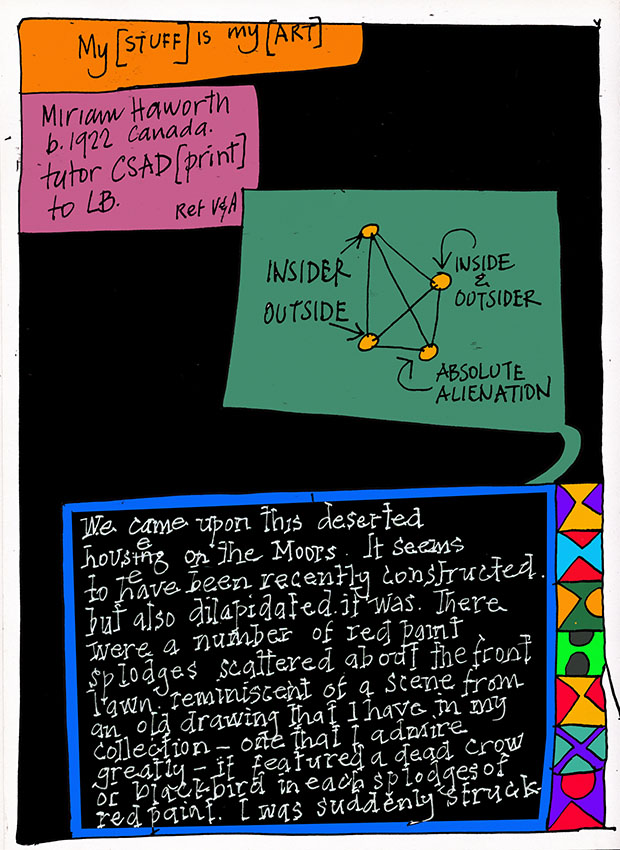 My [STUFF] is my [ART]
Miriam Haworth
b. 1922 Canada.
tutor CSAD [print]
to LB.
Ref V&A
INSIDER
OUTSIDE
INSIDE
&
OUTSIDER
ABSOLUTE
ALIENATION
We came upon this deserted
house on the Moors. It seems
to have been recently constructed.
but also dilapidated it was. There
were a number of red paint
splodges scattered about the front
lawn. reminiscent of a scene from
an old drawing that I have in my
collection - one that I admire
greatly - it featured a dead crow
or blackbird in each splodges of
red paint. I was suddenly struck